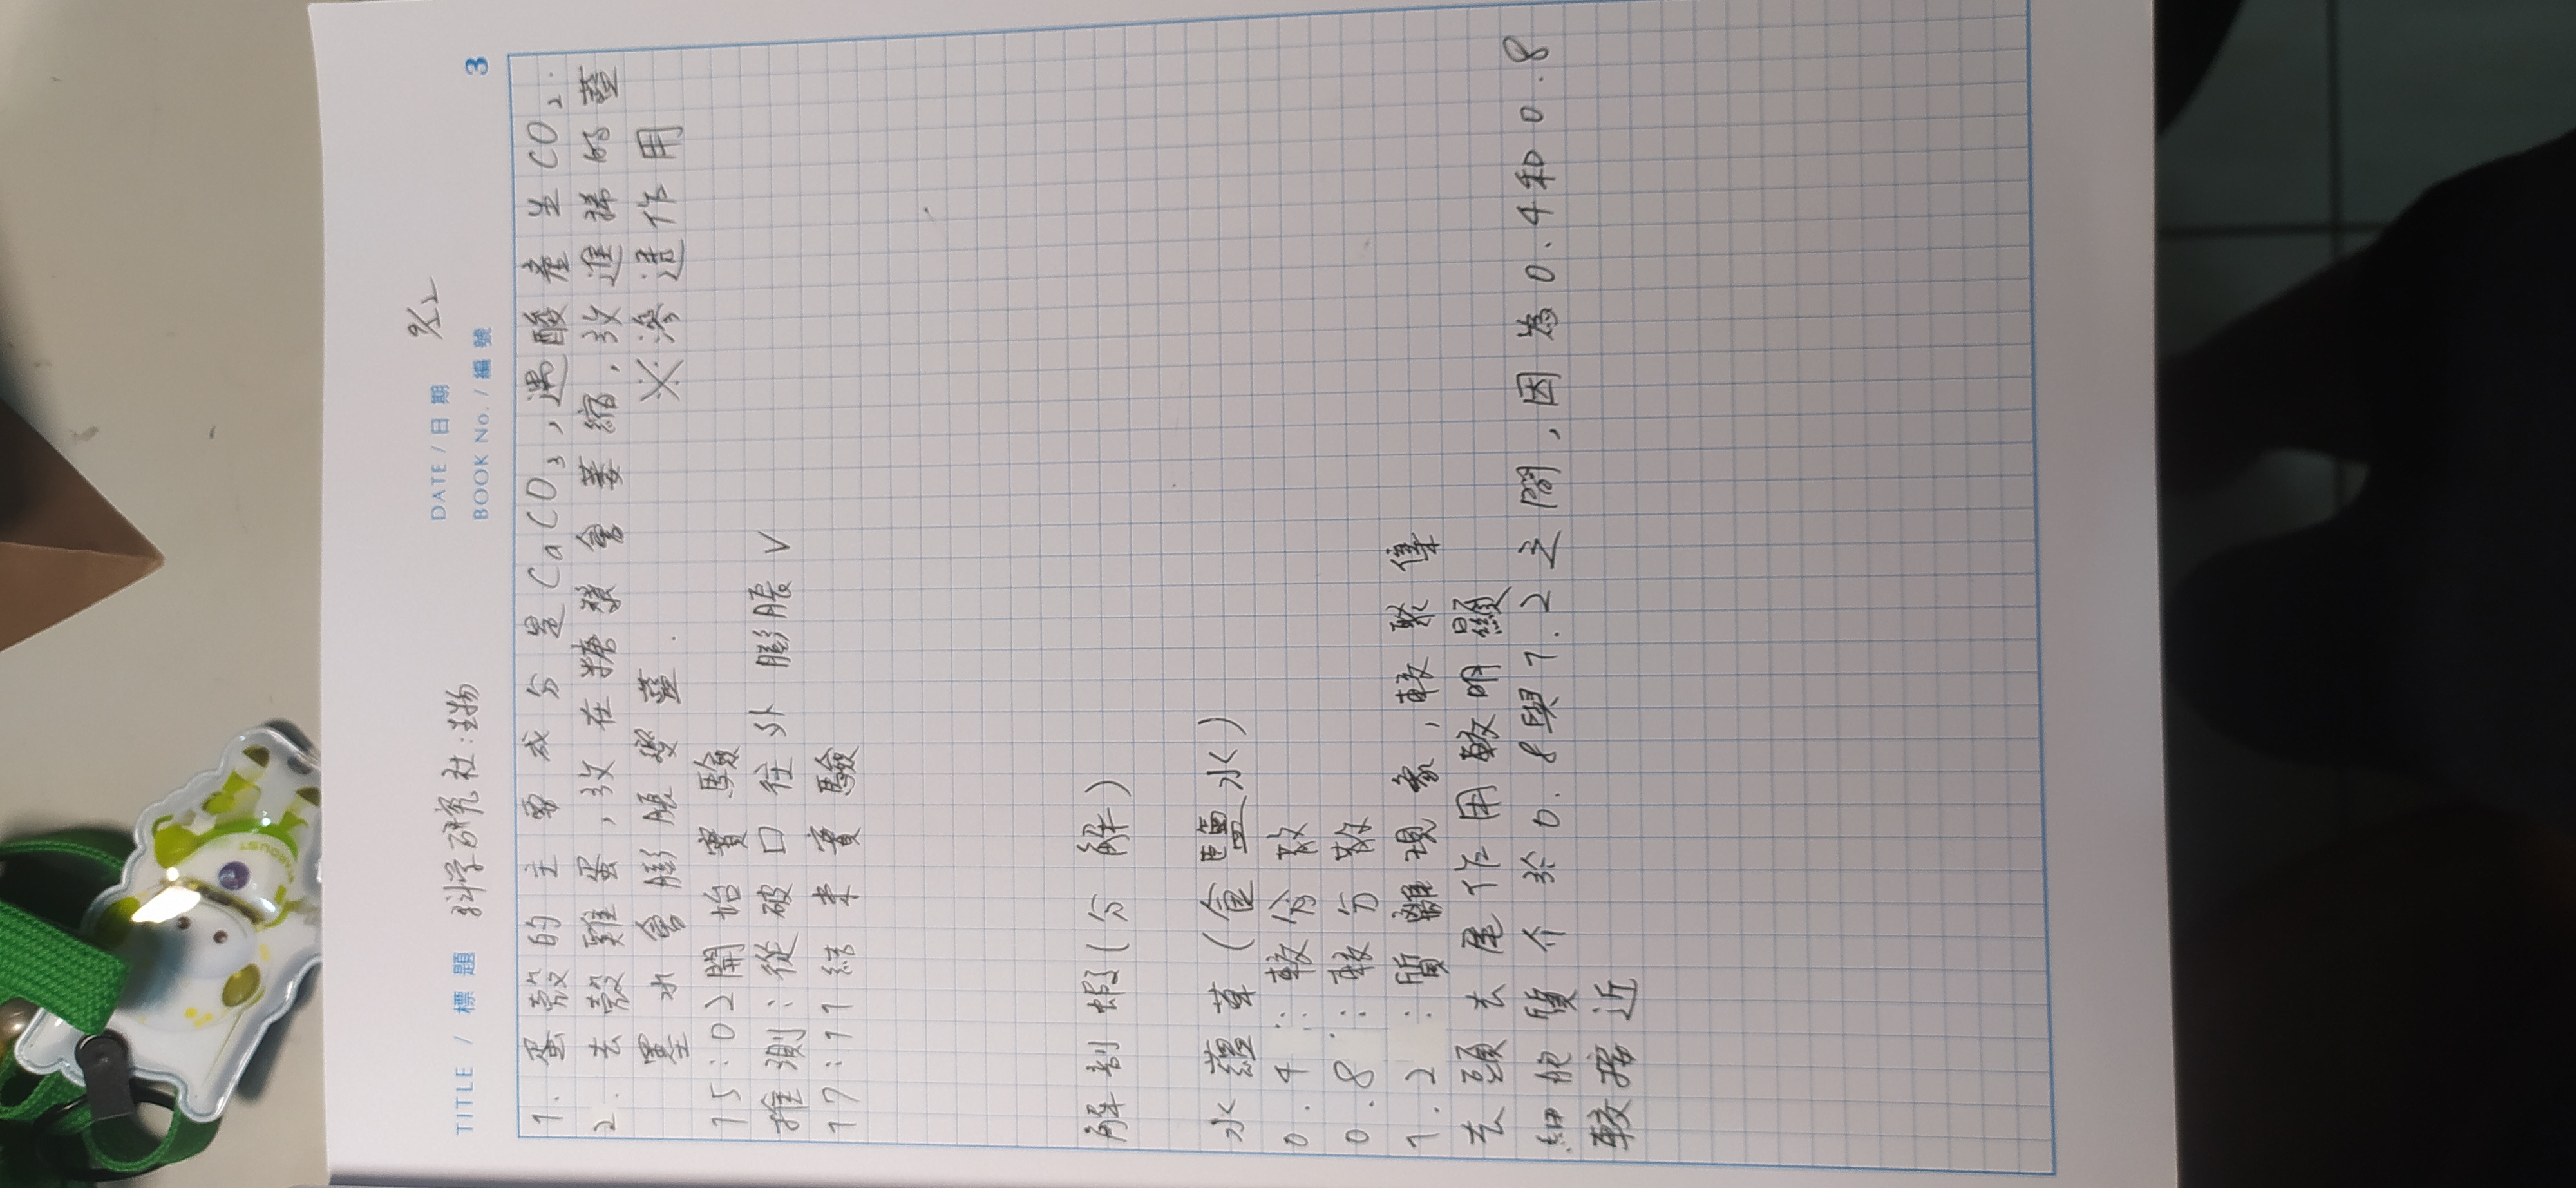 STARDUST
TITLE / 標題 科学研究社:生物
DATE / 日期 9/22
BOOK No. / 編號
3
1. 蛋殼的主要成分是CaCO₃,遇酸產生CO₂.
2. 去殼雞蛋,放在糖漿會萎縮,放進稀的藍
墨水會膨脹變藍. ※滲透作用
15:02開始實驗
推測:從破口往外膨脹V
17:11結束實驗
解剖蝦(分解)
水蘊草(食鹽水)
0.4:較分散
0.8:較分散
1.2:質離現象,較聚集
去頭去尾作用較明顯
細胞質介於0.8與1.2之間,因為0.4和0.8
較接近